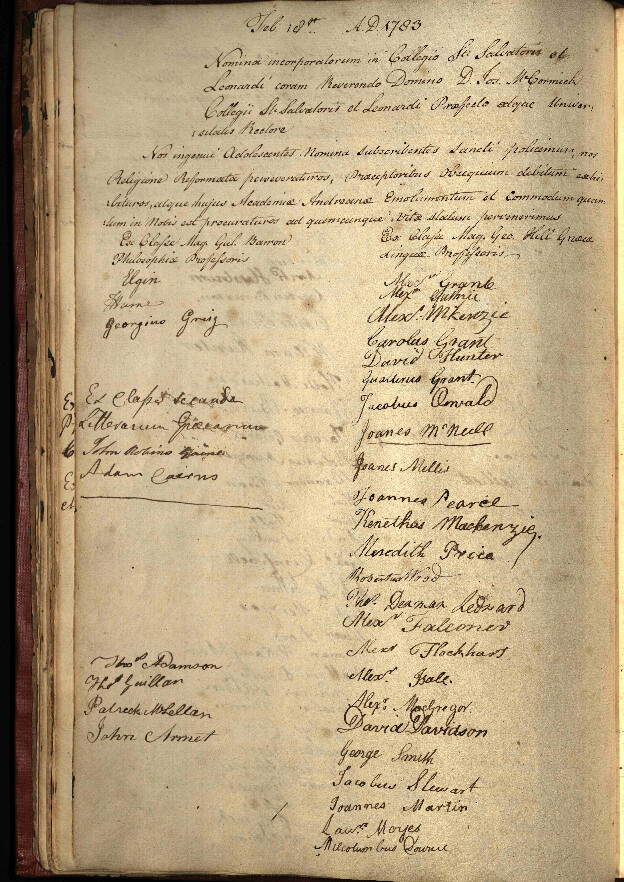 Feb. 18th. A.D. 1783
Nomina incorporatorum in Collegio Sti Salvatoris et
Leonardi coram Reverendo Domino D. Jos. McCormick
Collegii Sti Salvatoris et Leonardi Præfecto atque Univer,
,sitatis Rectore
Nos ingenui Adolescentes Nomina subscribentes Sancti pollicemur, nos
Religione Reformata perseveraturos, Præceptoribus Obsequium debitum exhi
bituros, atque hujus Academiæ Andreanæ Emolumentum et Commodum quan
tum in Nobis est procuraturos ad quemcunque Vitæ statum pervenerimus
Ex Classe Mag. Gul. Barron
Philosophiæ Professoris
Elgin
Georgius Greig
Ex Classe secunda
Litterarum Græcarum
John Robins
Adam Cairns
Thos. Adamson
Thos. Guillan
Patrick McLellan
John Armet
Ex Classe Mag. Geo. Hill Græcæ
Linguæ Professoris
Alexr. Grant
Alexr. Guthrie
Alexr. Mkenzie
Carolus Grant
David Hunter
Gualterus Grant
Jacobus Oswald
Joanes McNeill
Joanes Mellis
Joannes Pearce
Kenethus Mackenzie
Meredith Price
Robertus Wood
Thos. Denman Ledward
Alexr. Falconer
Alexr. Flockhart
Alexr.
Alexr. MacGregor
David Davidson
George Smith
Jacobus Stewart
Joannes Martin
Lawce. Moyes